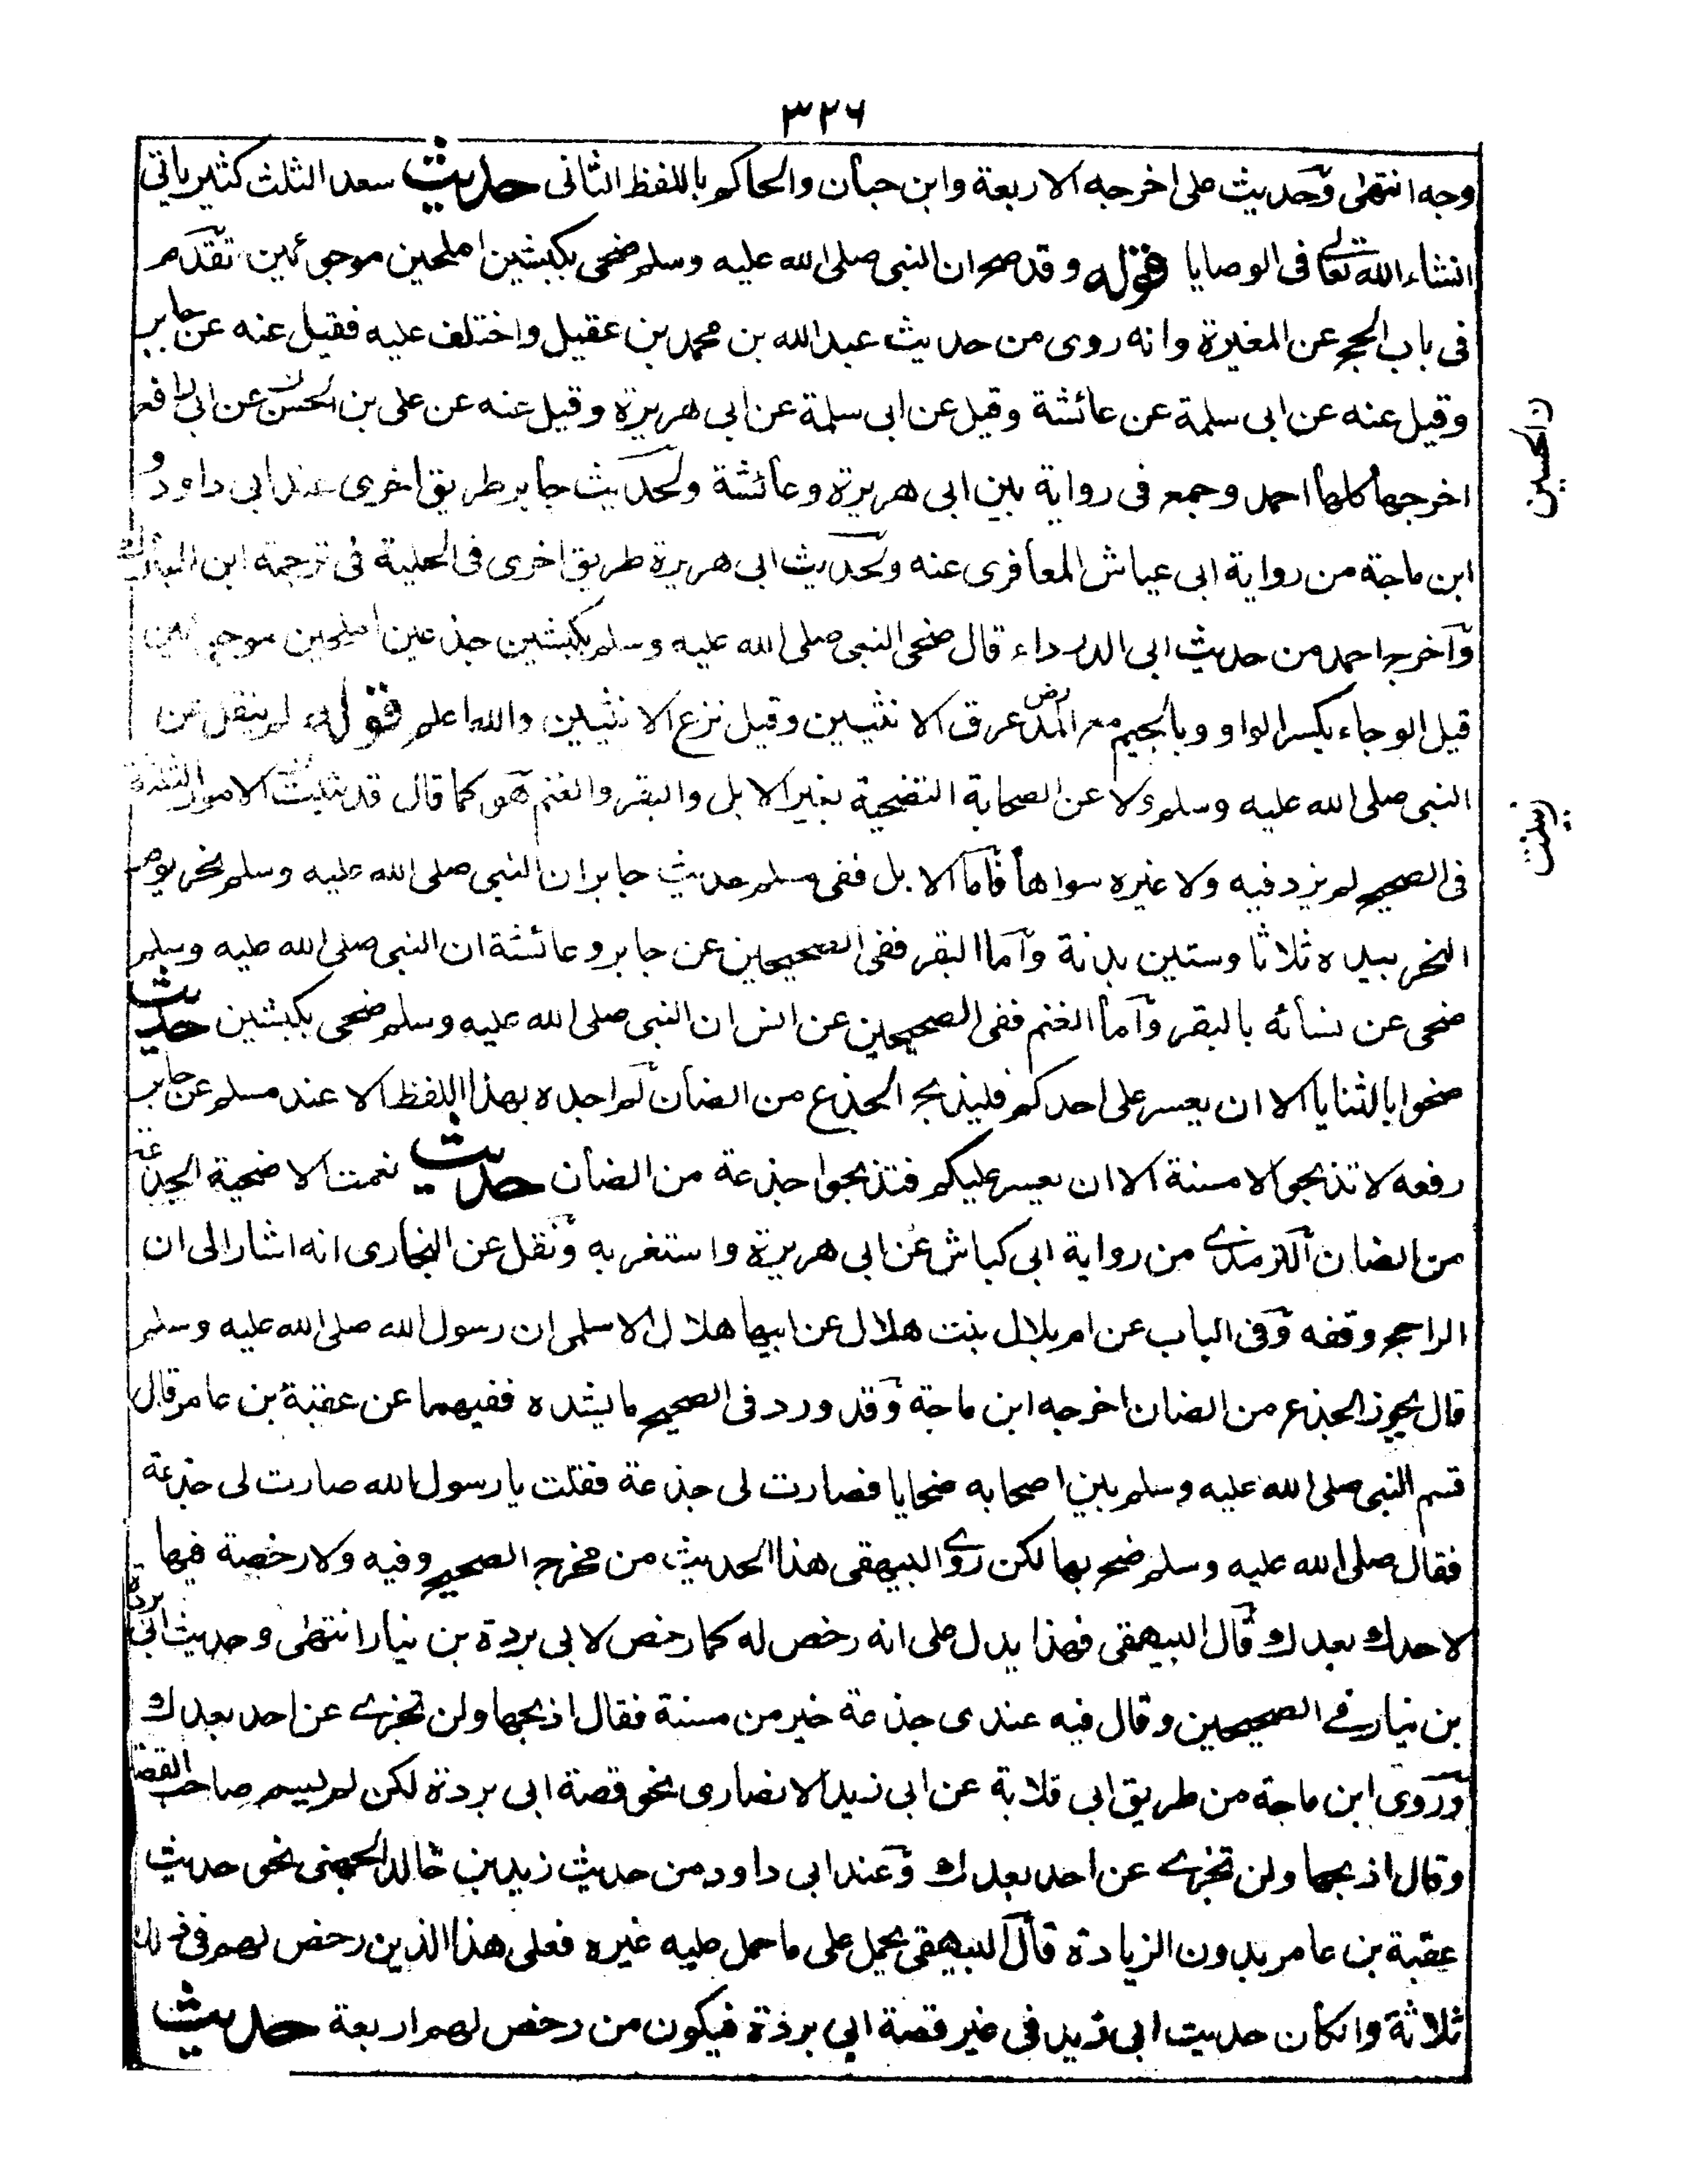 ٣٢٦
وجه انتهى وحديث على اخرجه الاربعة وابن حبان والحاكم باللفظ الثانى حديث سعد الثلث كثير ياتى
انشاء الله تعالى فى الوصايا قوله وقد صح ان النبى صلى الله عليه وسلم ضحى بكبشين املحين موجوئين تقدم
فى باب الحج عن المغيرة وانه روى من حديث عبد الله بن محمد بن عقيل واختلف عليه فقيل عنه عن جابر
وقيل عنه عن ابى سلمة عن عائشة وقيل عن ابى سلمة عن ابى هريرة وقيل عنه عن على بن الحسن عن ابى رافع
ن الحسين
اخرجها كلها احمد وجمع فى رواية بين ابى هريرة وعائشة ولحديث جابر طريق اخرى عند ابى داود و
ابن ماجة من رواية ابى عياش المعافرى عنه ولحديث ابى هريرة طريق اخرى فى الحلية فى ترجمة ابن المبارك
وآخرج احمد من حديث ابى الدرداء قال ضحى النبى صلى الله عليه وسلم بكبشين جذعين املحين موجوئين
قيل الوجاء بكسر الواو وبالجيم مع المد رض عرق الانثيين وقيل نزع الانثيين والله اعلم قوله لم ينقل عن
النبى صلى الله عليه وسلم ولا عن الصحابة التضحية بغير الابل والبقر والغنم هو كما قال قد ثبتت الامور الثلاثة
فى الصحيح لم يزد فيه ولا غيره سواها فاما الابل ففى مسلم حديث جابر ان النبى صلى الله عليه وسلم نحر يوم
النحر بيده ثلاثا وستين بدنة وآما البقر ففى الصحيحين عن جابر وعائشة ان النبى صلى الله عليه وسلم
ضحى عن نسائه بالبقر وآما الغنم ففى الصحيحين عن انس ان النبى صلى الله عليه وسلم ضحى بكبشين حديث
ضحوا بالثنايا الا ان يعسر على احدكم فليذبح الجذع من الضأن لم اجده بهذا اللفظ الا عند مسلم عن جابر
رفعه لا تذبحوا الا مسنة الا ان يعسر عليكم فتذبحوا جذعة من الضأن حديث نعمت الاضحية الجذعة
من الضان الترمذى من رواية ابى كباش عن ابى هريرة واستغر به ونقل عن البخارى انه اشار الى ان
الراجح وقفه وفى الباب عن ام بلال بنت هلال عن ابيها هلال الاسلمى ان رسول الله صلى الله عليه وسلم
قال يجوز الجذع من الضان اخرجه ابن ماجة وقد ورد فى الصحيح ما يشده ففيهما عن عقبة بن عامر قال
قسم النبى صلى الله عليه وسلم بين اصحابه ضحايا فصارت لى جذعة فقلت يا رسول الله صارت لى جذعة
فقال صلى الله عليه وسلم ضح بها لكن روى البيهقى هذا الحديث من مخرج الصحيح وفيه ولا رخصة فيها
لاحدك بعدك قال البيهقى فهذا يدل على انه رخص له كما رخص لابى بردة بن نيار انتهى وحديث ابى بردة
بن نيار فى الصحيحين وقال فيه عندى جذعة خير من مسنة فقال اذبحها ولن تجزى عن احد بعدك
وروى ابن ماجة من طريق ابى قلابة عن ابى زيد الانصارى نحو قصة ابى بردة لكن لم يسم صاحب القصة
وقال اذبحها ولن تجزى عن احد بعدك وعند ابى داود من حديث زيد بن خالد الجهنى نحو حديث
عقبة بن عامر بدون الزيادة قال البيهقى يحمل على ما حمل عليه غيره فعلى هذا الذين رخص لهم فى ذلك
ثلاثة وانكان حديث ابى زيد فى غير قصة ابى بردة فيكون من رخص لهم اربعة حديث